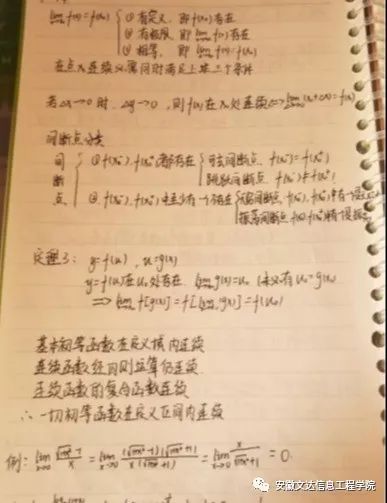 lim f(x)=f(x₀) { ① 有定义, 即f(x₀)存在
② 有极限, 即 lim f(x)存在
③ 相等, 即 lim f(x)=f(x₀)
在点x₀连续必需同时满足上述三个条件
若Δx→0时, Δy→0, 则f(x)在x₀处连续
间断点分类
间断点 { ① f(x₀⁻), f(x₀⁺)都存在 { 可去间断点, f(x₀⁻)=f(x₀⁺)
跳跃间断点, f(x₀⁻)≠f(x₀⁺)
② f(x₀⁻), f(x₀⁺)中至少有一个不存在
振荡间断点
定理3: y=f(u), u=g(x)
y=f(u)在u₀处存在, lim g(x)=u₀
⇒ lim f[g(x)]=f[lim g(x)]=f(u₀)
基本初等函数在定义域内连续
连续函数经四则运算仍连续
连续函数的复合函数连续
∴ 一切初等函数在定义区间内连续
例: lim x→0 (√(1+x²)-1)/x = lim x→0 (√(1+x²)-1)(√(1+x²)+1)/x(√(1+x²)+1) = lim x→0 x/(√(1+x²)+1) = 0
安徽文达信息工程学院